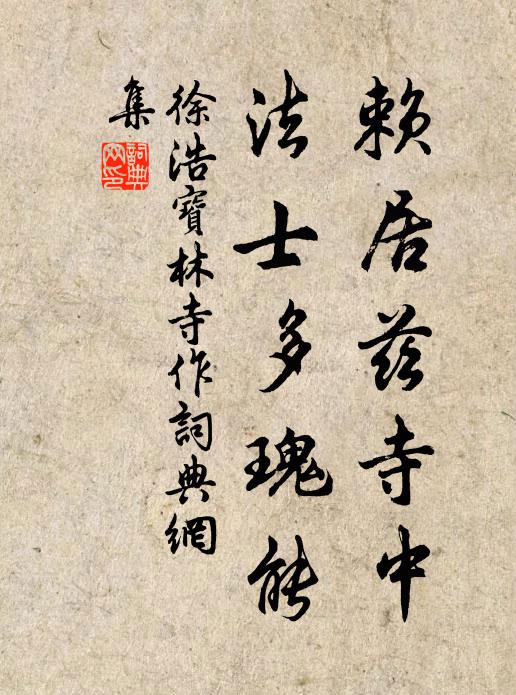 賴居茲寺中
法士多瑰能
徐浩寶林寺作詞典網
集
詞典
网印